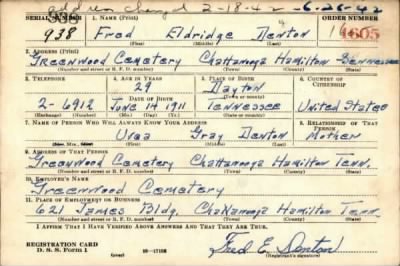 address changed 2-18-42 - 6-26-42
SERIAL NUMBER 1. NAME (Print) ORDER NUMBER
938 Fred Eldridge Denton 4605
(First) (Middle) (Last)
2. ADDRESS (Print)
Greenwood Cemetery Chattanooga Hamilton Tennessee
(Number and street or R. F. D. number) (Town) (County) (State)
3. TELEPHONE 4. AGE IN YEARS 5. PLACE OF BIRTH 6. COUNTRY OF CITIZENSHIP
29 Dayton
DATE OF BIRTH (Town or county)
2-6912 June 14 1911 Tennessee United States
(Exchange) (Number) (Mo.) (Day) (Yr.) (State or country)
7. NAME OF PERSON WHO WILL ALWAYS KNOW YOUR ADDRESS 8. RELATIONSHIP OF THAT PERSON
Gray Denton Mother
(First) (Middle) (Last)
9. ADDRESS OF THAT PERSON
Greenwood Cemetery Chattanooga Hamilton Tenn.
(Number and street or R. F. D. number) (Town) (County) (State)
10. EMPLOYER'S NAME
Greenwood Cemetery
11. PLACE OF EMPLOYMENT OR BUSINESS
621 James Bldg. Chattanooga Hamilton Tenn.
(Number and street or R. F. D. number) (Town) (County) (State)
I AFFIRM THAT I HAVE VERIFIED ABOVE ANSWERS AND THAT THEY ARE TRUE.
REGISTRATION CARD
D. S. S. Form 1
Fred E. Denton
(Registrant's signature)